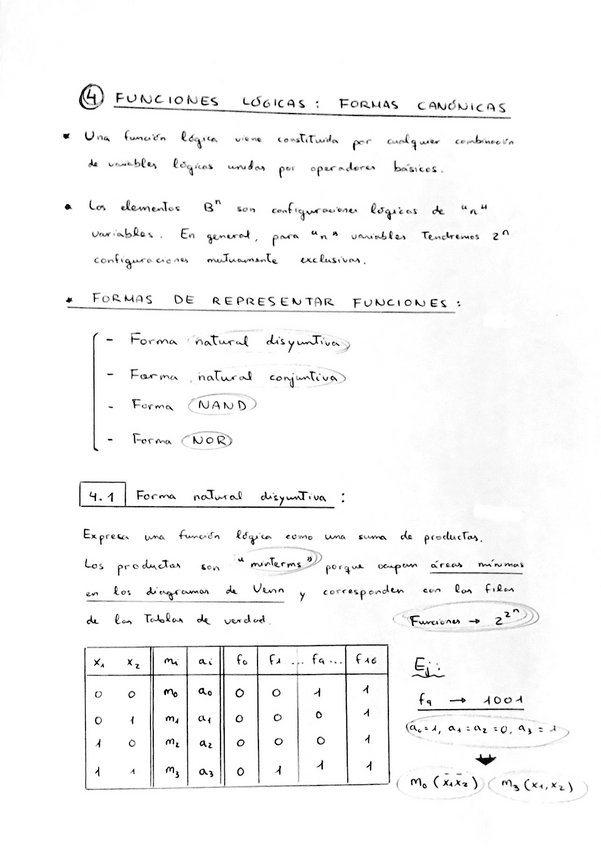 ④ FUNCIONES LÓGICAS: FORMAS CANÓNICAS
* Una función lógica viene constituida por cualquier combinación
de variables lógicas unidas por operadores básicos.
• Los elementos Bⁿ son configuraciones lógicas de "n"
variables. En general, para "n" variables Tendremos 2ⁿ
configuraciones mutuamente exclusivas.
* FORMAS DE REPRESENTAR FUNCIONES:
- Forma natural disyuntiva
- Forma natural conjuntiva
- Forma NAND
- Forma NOR
4.1 Forma natural disyuntiva:
Expresa una función lógica como una suma de productos.
Los productos son "minterms" porque ocupan áreas mínimas
en los diagramas de Venn y corresponden con las filas
de las Tablas de verdad. Funciones → 2^2^n
x₁ x₂ mᵢ aᵢ f₀ f₁ ... f₉ ... f₁₆
0 0 m₀ a₀ 0 0 1 1
0 1 m₁ a₁ 0 0 0 1
1 0 m₂ a₂ 0 0 0 1
1 1 m₃ a₃ 0 1 1 1
Ej:
f₉ → 1001
(a₀=1, a₁=a₂=0, a₃=1
m₀ (x̄₁x̄₂) m₃ (x₁,x₂)